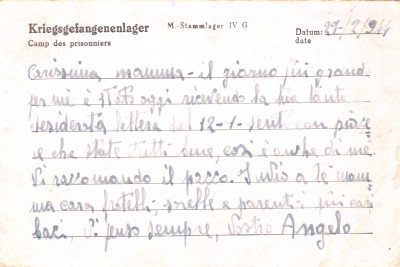 Kriegsgefangenenlager
Camp des prisonniers
M.-Stammlager IV G
Datum: 27/2/944
date
Carissima mamma - il giorno più grand
per me è stato oggi ricevendo la tua tanto
desiderata lettera del 12-1- sento con piace
e che state tutti bene, così è anche di me.
Vi raccomando il pacco. Invio a te mam
ma cara, fratelli, sorelle e parenti i più cari
baci, Vi penso sempre, Vostro Angelo